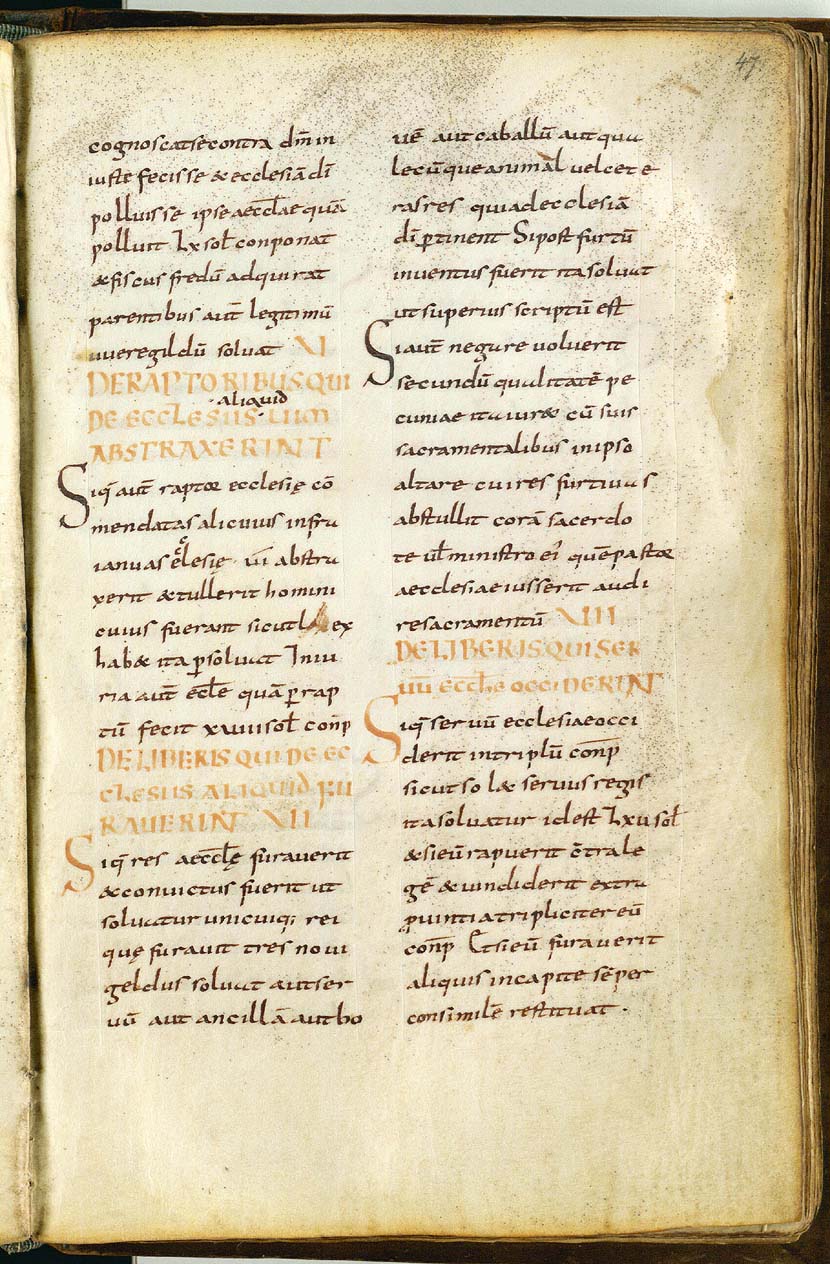 47
cognoscatse contra dm̄ in
iuste fecisse & ecclesiā dī
polluisse ipse aeccl̄ae quā
polluit Lx sol̄ conponat
& fiscus fredū adquirat
parentibus aut̄ legitimū
uueregildū soluat XI
DE RAPTORIBUS QUI
aliquid
DE ECCLESIIS UIM
ABSTRAXERINT
Siq̄ aut̄ raptor ecclesię cō
mendatas alicuius infra
ianuas eclesię uī abstra
xerit & tullerit homini
cuius fuerant sicut ex
hab& ita ꝑsoluat Iniu
ria aut̄ eccl̄e quā ꝑ rap
tū fecit xuiii sol̄ con̄p
DE LIBERIS QUI DE EC
CLESIIS ALIQUID FU
RAUERINT XII
Siq̄ res aeccl̄ę furauerit
& conuictus fuerit ut
soluatur unicuiq; rei
quę furauit tres noui
geldus soluat aut ser
uū aut ancillā aut bo
uē aut caballū aut qua
lecūque animal uel cete
ras res quia de cclesiā
dī ꝑtinent Si post furtū
inuentus fuerit ita soluat
ut superius scriptū est
Si aut̄ negare uoluerit
secundū qualitatē pe
cuniae ita iur& cū suis
sacramentalibus in ipso
altare cui res furtiuas
abstullit corā sacerdo
te ul̄ ministro eī quē pastor
aecclesiae iusserit audi
re sacramentū XIII
DE LIBERIS QUI SER
UŪ eccl̄ae OCCIDERINT
Siq̄ seruū ecclesiae occi
derit in triplū con̄p
sicut sol& seruus regis
ita soluatur id est Lxu sol̄
& si eū rapuerit ċtra le
gē & uindiderit extra
ꝓuintia tripliciter eū
con̄p Et si eū furauerit
aliquis in capite sēper
consimilē restituat .